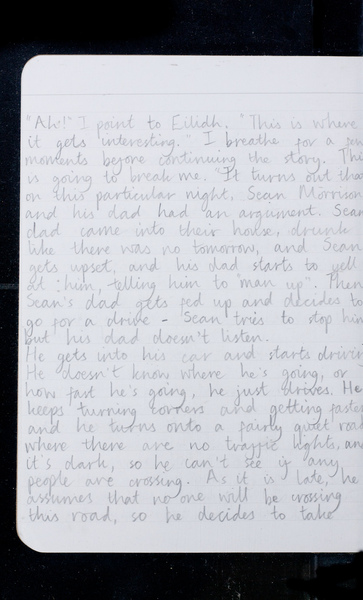 "Ah!" I point to Eilidh. "This is where
it gets interesting." I breathe for a few
moments before continuing the story. This
is going to break me. "It turns out that
on this particular night, Sean Morrison
and his dad had an argument. Sean
dad came into their house, drunk
like there was no tomorrow, and Sean
gets upset, and his dad starts to yell
at him, telling him to "man up". Then
Sean's dad gets fed up and decides to
go for a drive - Sean tries to stop him
but his dad doesn't listen.
He gets into his car and starts drivin
He doesn't know where he's going, or
how fast he's going, he just drives. He
keeps turning corners and getting faster
and he turns onto a fairly quiet road
where there are no traffic lights, and
it's dark, so he can't see if any
people are crossing. As it is late, he
assumes that no one will be crossing
this road, so he decides to take